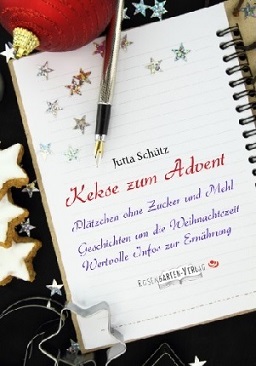 Jutta Schütz
Kekse zum Advent
Plätzchen ohne Zucker und Mehl
Geschichten um die Weihnachtszeit
Wertvolle Infos zur Ernährung
ROSENGARTEN-VERLAG